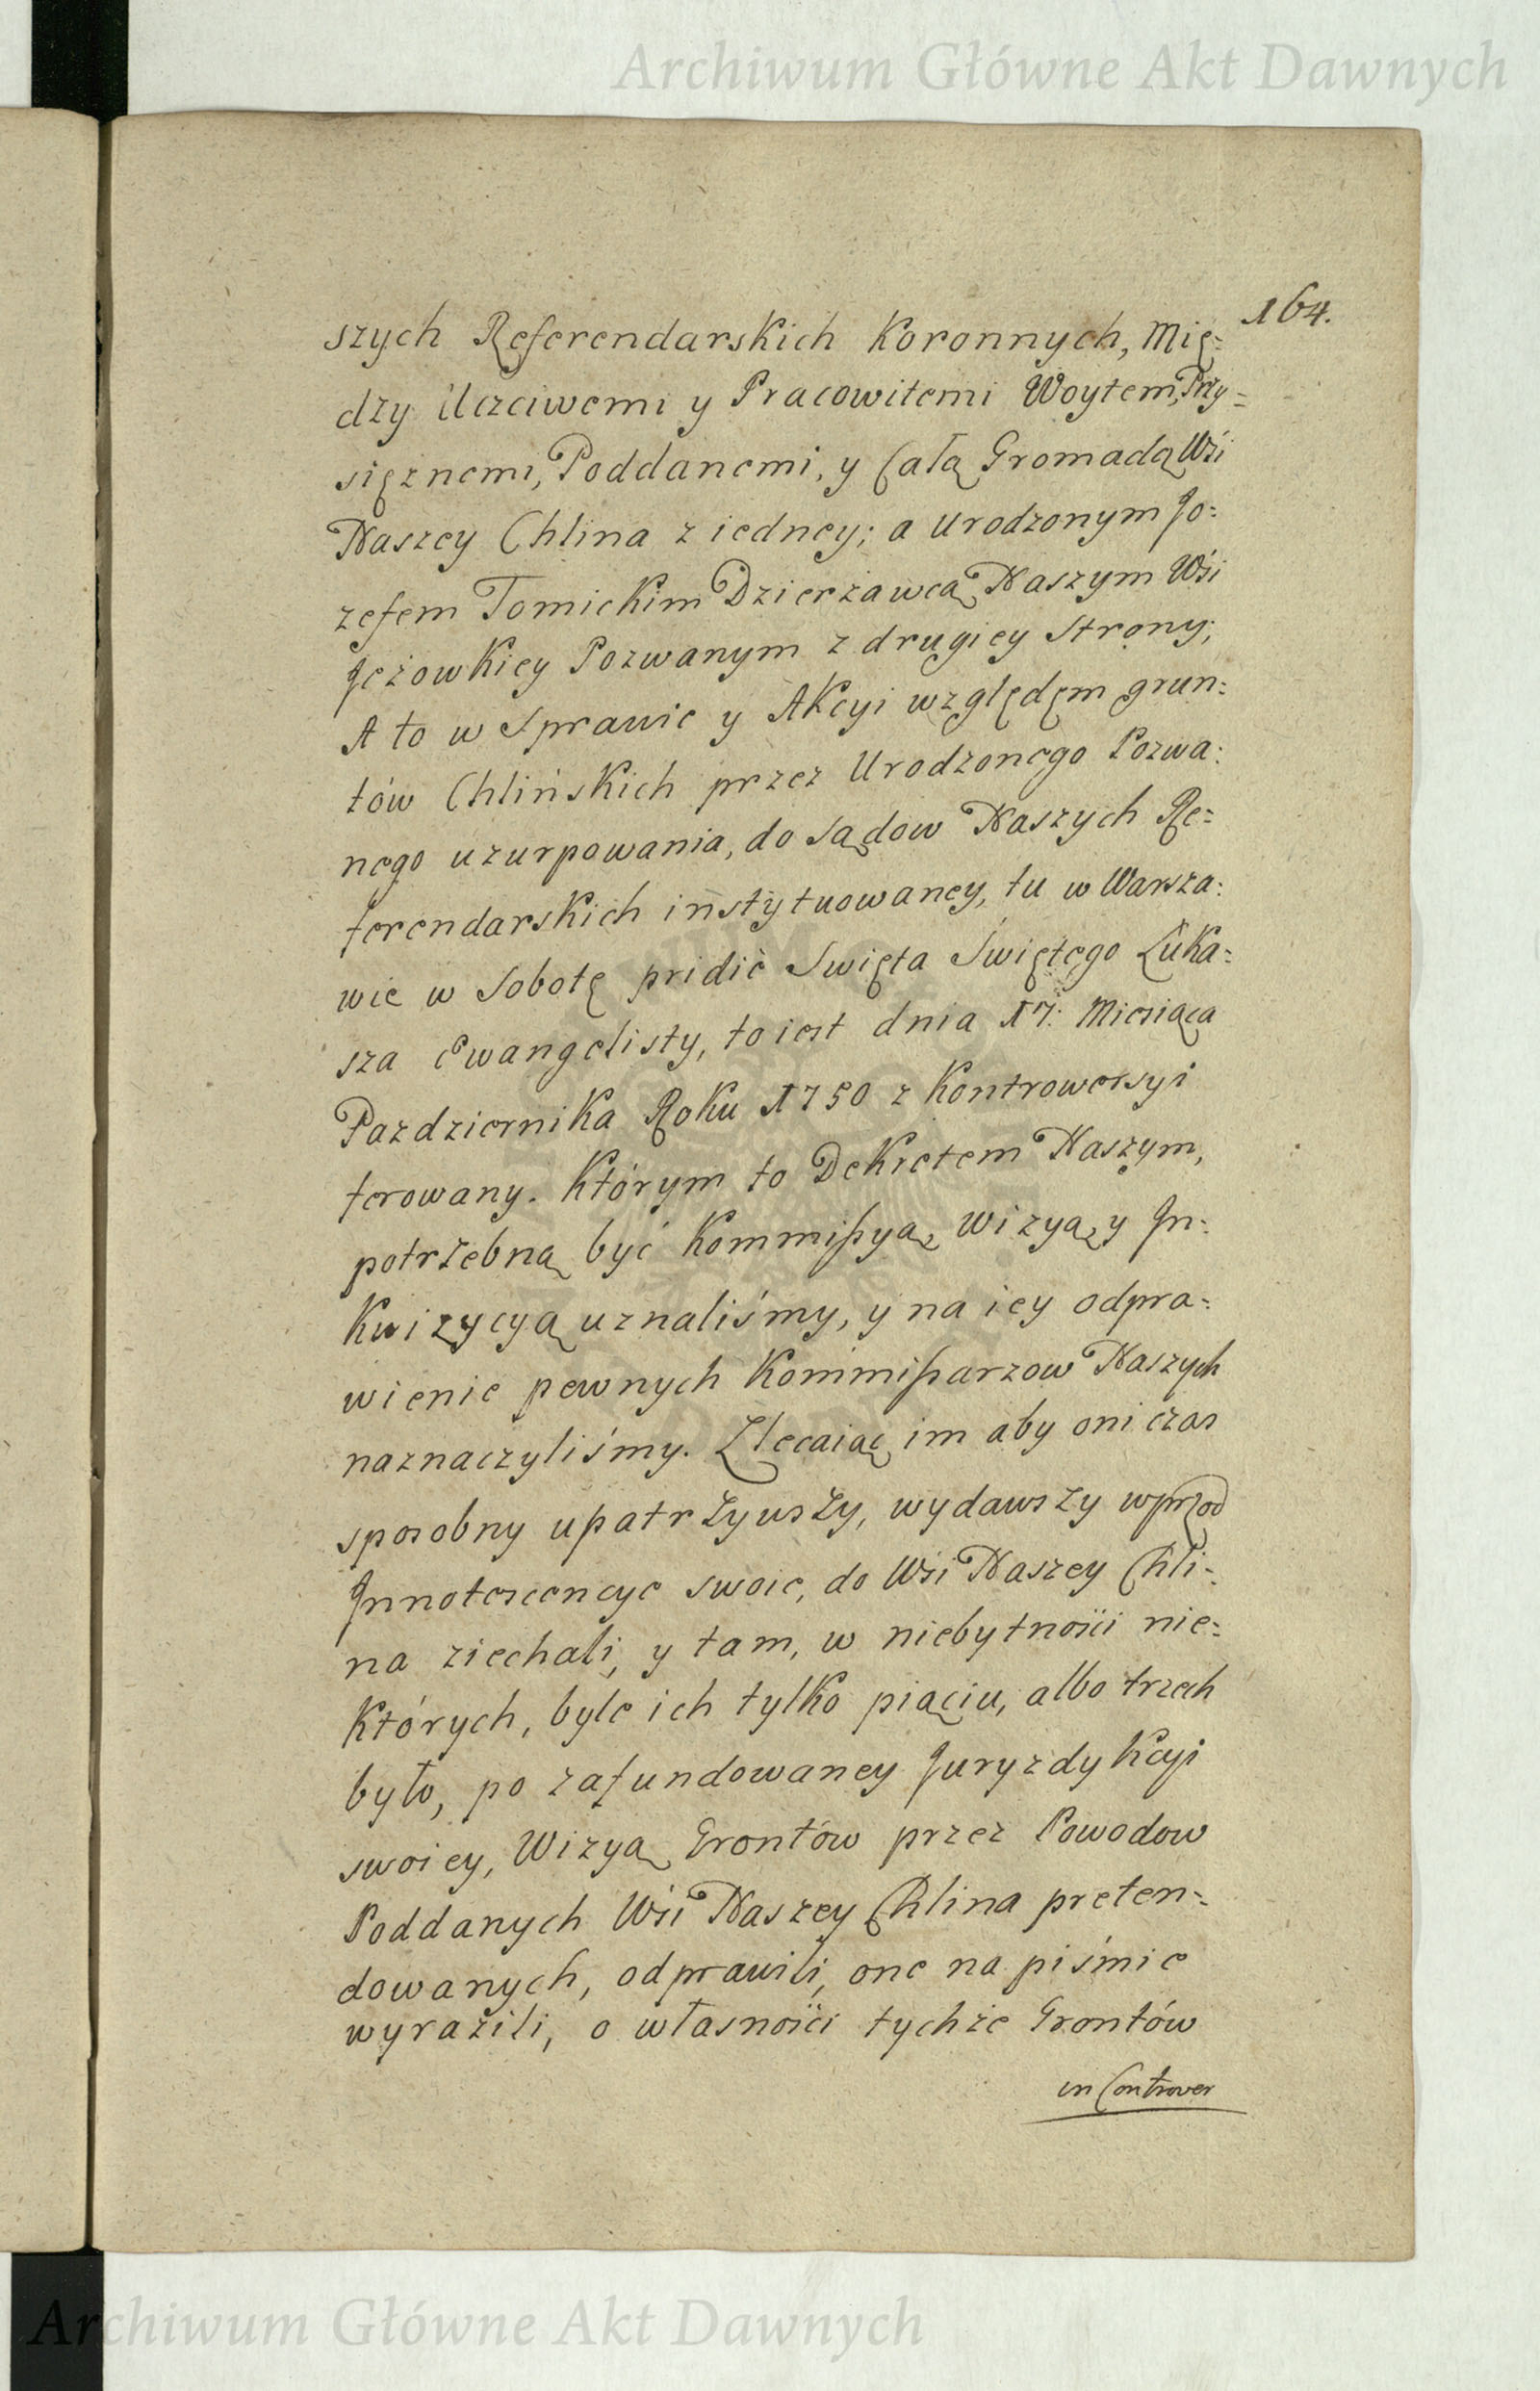 Archiwum Główne Akt Dawnych
164.
szych Referendarskich Koronnych, Mię=
dzy Uczciwemi y Pracowitemi Woytem, Przy=
siężnemi, Poddanemi, y Całą Gromadą Wśi
Naszey Chlina z iedney; a Urodzonym Jo=
zefem Tomickim Dzierżawcą Naszym Wśi
Jeżowkiey Pozwanym z drugiey Strony;
A to w Sprawie y Akcyi względęm grun=
tów Chlińskich przez Urodzonego Pozwa=
nego uzurpowania, do Sądow Naszych Re=
ferendarskich instytuowaney, tu w Warsza=
wie w Sobotę pridiè Swięta Świętego Łuka=
sza Ewangelisty, to iest dnia 17. Miesiąca
Pazdziernika Roku 1750 z Kontrowersyi
ferowany. Którym to Dekretem Naszym,
potrzebną być Kommißyą, Wizyą, y In=
kwizycyą uznaliśmy, y na iey odpra=
wienie pewnych Kommißarzow Naszych
naznaczyliśmy. Zlecaiąc im aby oni czas
sposobny upatrzywszy, wydawszy wprzod
Innotescencye swoie, do Wsi Naszey Chli=
na ziechali, y tam, w niebytności nie=
których, byle ich tylko piąciu, albo trzech
było, po zafundowaney Juryzdykcyi
swoiey, Wizyą Grontów przez Powodow
Poddanych Wśi Naszey Chlina preten=
dowanych, odprawili, one na piśmie
wyrazili, o własności tychże Grontów
in Controver
Archiwum Główne Akt Dawnych